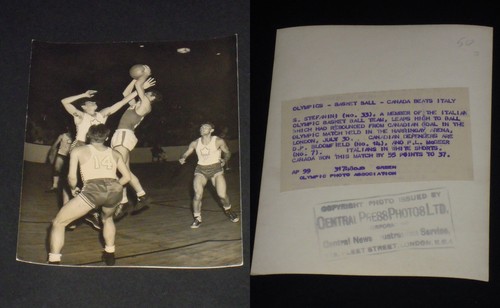 14
60
OLYMPICS - BASKET BALL - CANADA BEATS ITALY
S. STEFANINI (NO. 33), A MEMBER OF THE ITALIAN
OLYMPIC BASKET BALL TEAM, LEAPS HIGH TO BALL
WHICH HAD REBOUNDED FROM CANADIAN GOAL IN THE
OLYMPIC MATCH HELD IN THE HARRINGAY ARENA,
LONDON, JULY 30. CANADIAN DEFENDERS ARE
S.F. (NO. 14), AND P.L.
(NO. 7). ITALIANS IN WHITE SHORTS.
CANADA WON THIS MATCH BY 55 POINTS TO 37.
AP 98
OLYMPIC PHOTO ASSOCIATION
COPYRIGHT PHOTO ISSUED BY
CENTRAL PRESS PHOTOS LTD.
Central News Service.
FLEET STREET LONDON, E.C.4